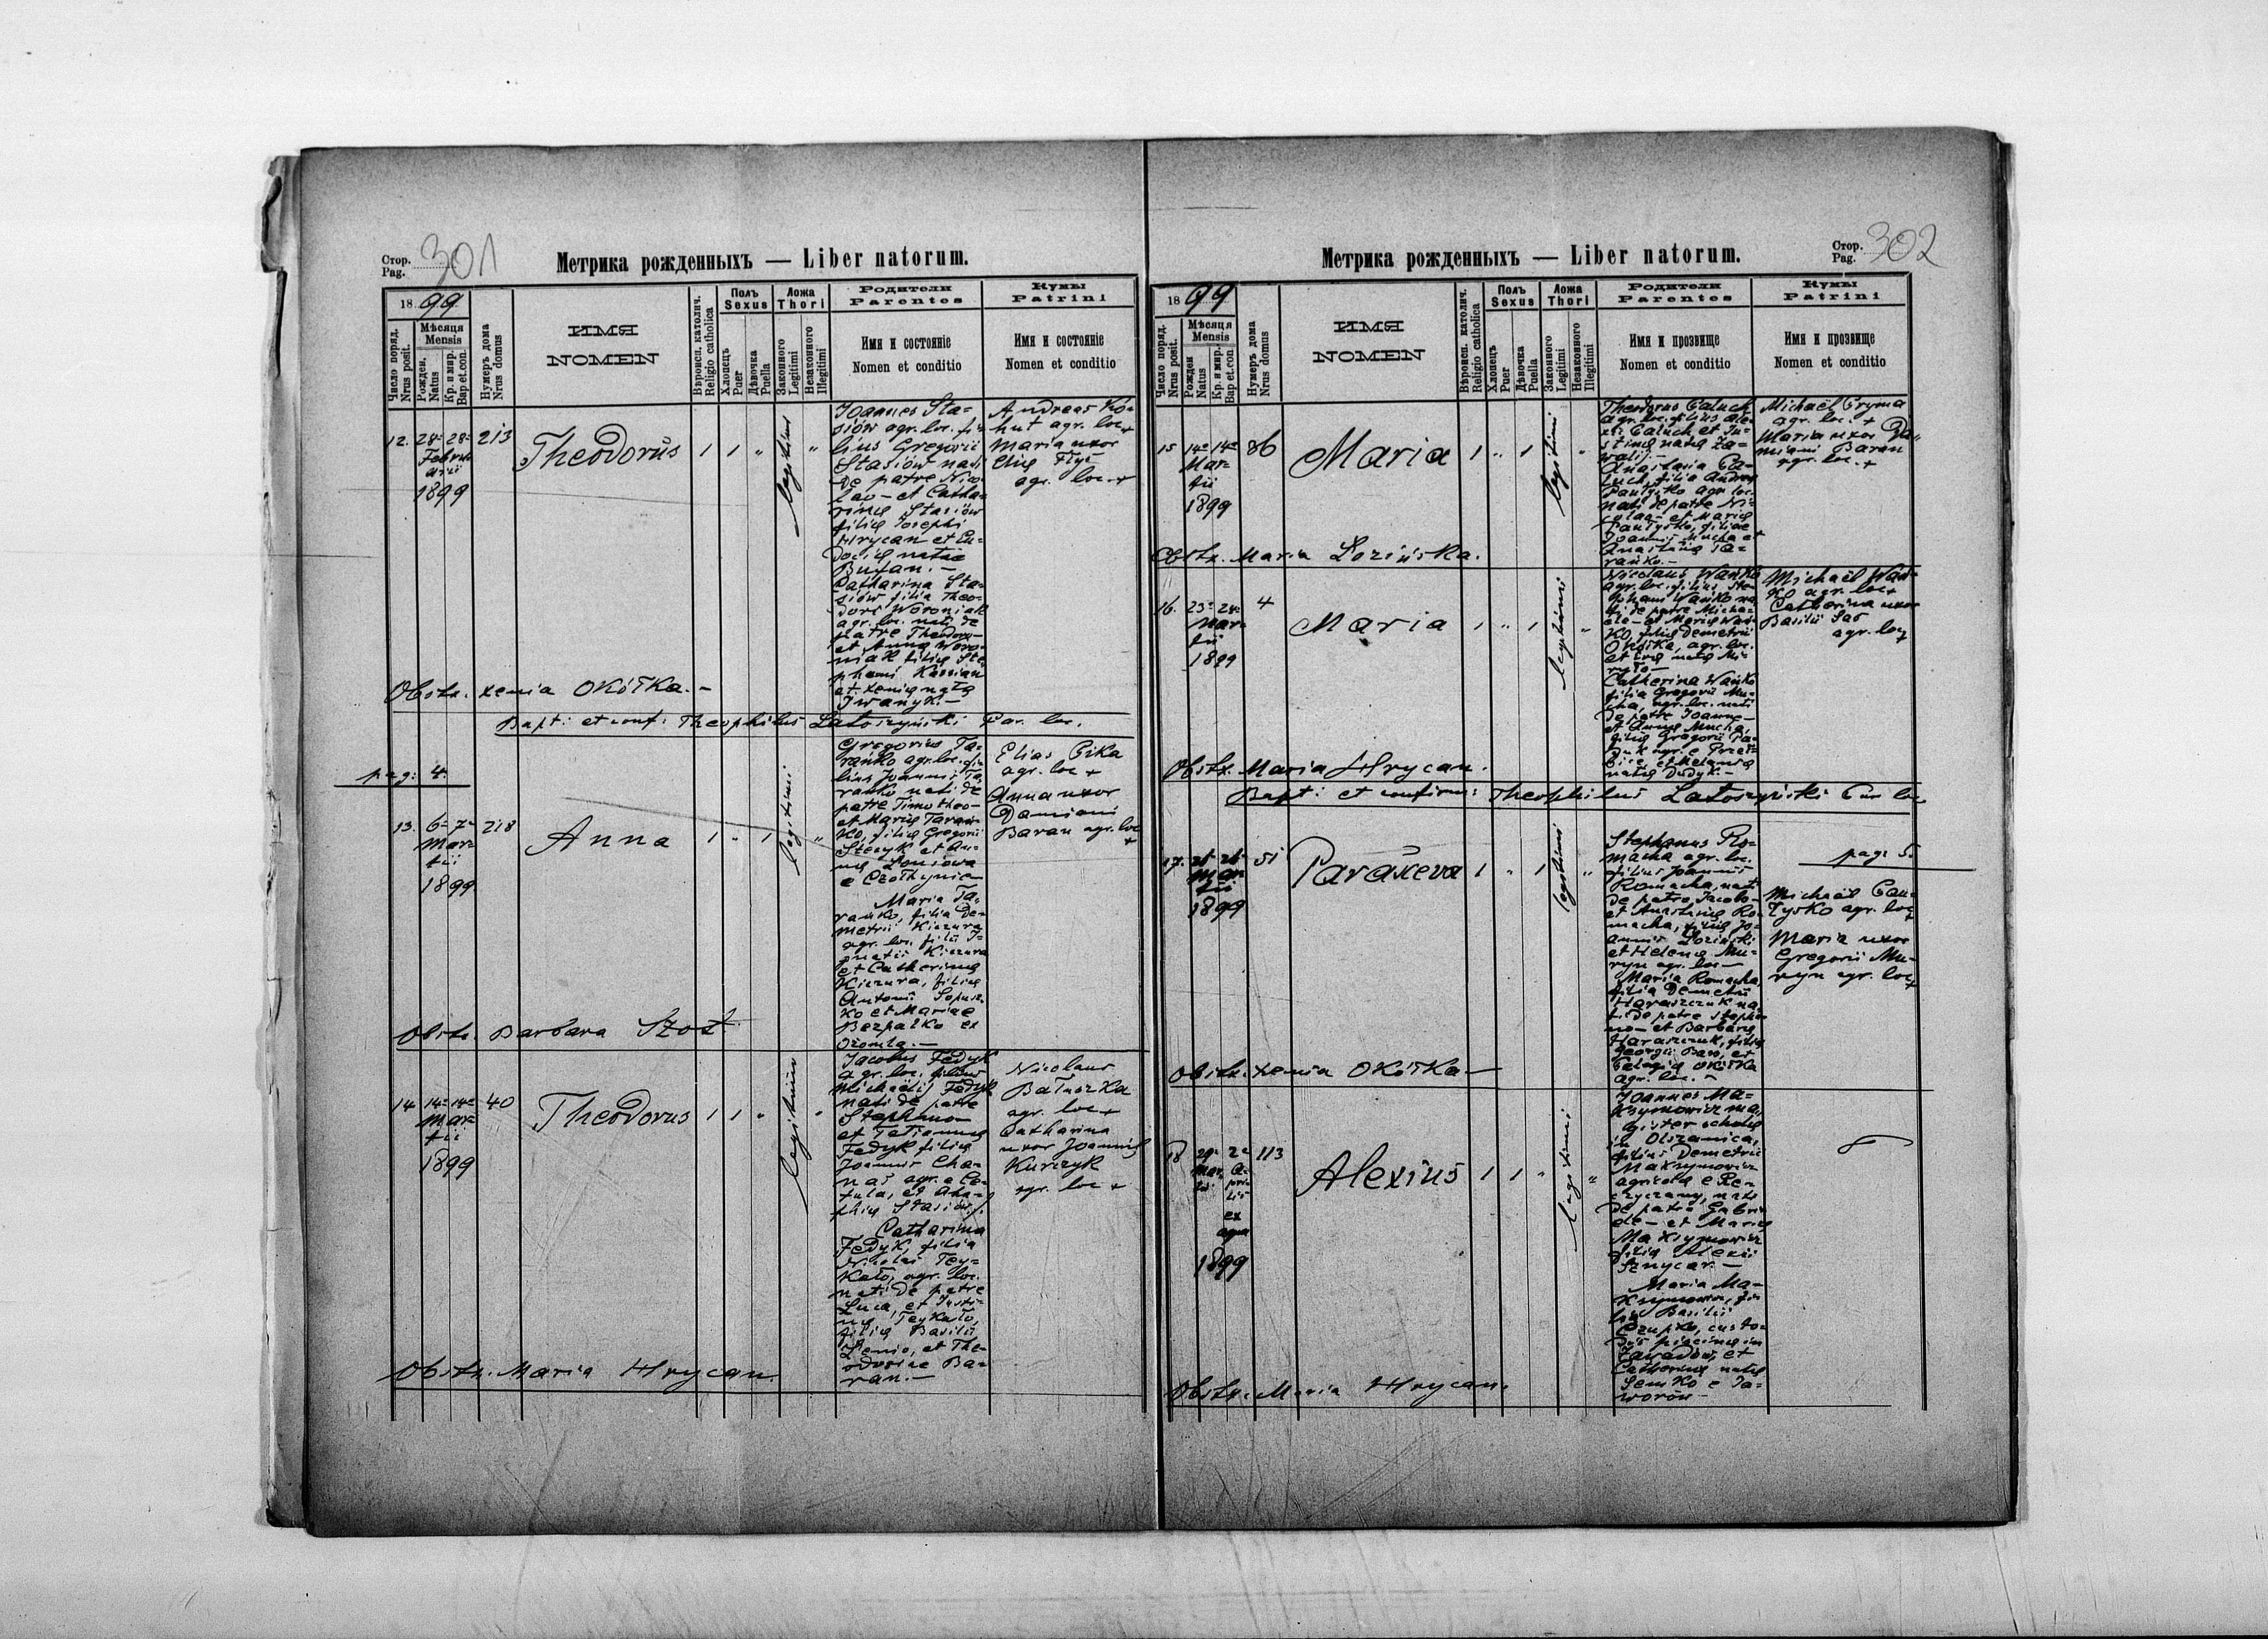 Стор. Pag. 301
Метрика рожденныхъ — Liber natorum.
18 99
Число поряд. Nrus posit.
Мѣсяця Mensis
Рожден. Natus
Кр. и мир. Bap. et. con.
Нумеръ дома Nrus domus
ИМЯ
NOMEN
Вѣроисп. католич. Religio catholica
Полъ Sexus
Хлопецъ Puer
Дѣвочка Puella
Ложа Thori
Законного Legitimi
Незаконного Illegitimi
Родители
Parentes
Имя и состояніе
Nomen et conditio
Кумы
Patrini
Имя и состояніе
Nomen et conditio
12. 28 28 213 Theodorus 1 1 " legitimi "
Febru
arii
1899
Joannes Sta-
siów agr. loc. fi-
lius Gregorii
Stasiów nati
de patre Nico
lao - et Catha-
rinę Stasiów
filię Josephi
Hrycan et Eu-
docię natae
Catharina Sta-
siów filia Theo-
dori Woroniak
agr. loc. nati de
patre Theodoro -
et Annę Woro-
niak filię Ste-
phani Kassian
et Xenię natę
Iwanyk. -
Andreas Ko-
hut agr. loc. +
Maria uxor
Elię
agr. loc. +
Obstx. Xenia Okótka. -
Bapt: et conf: Theophilus Latoszyński Par. loc.
pag: 4.
13. 6 7 218 Anna 1 " 1 legitimi "
Mar
tii
1899
Gregorius Ta-
rańko agr. loc. fi-
lius Joannis Ta
rańko nati de
patre Timotheo -
et Marię Tarań-
ko, filię Gregorii
Steczyk et An-
nę
Maria Ta-
rańko, filia De-
metrii Kiczura
agr. loc. filii I-
gnatii Kiczura
et Catherinę
Kiczura, filię
Antonii
ko et Mariae
Bezpalko ex
Ożomla. -
Elias Gika
agr. loc +
Anna uxor
Damiani
Baran agr. loc
+
Obstx. Barbara Szost
14 14 14 40 Theodorus 1 1 " legitimi "
Mar
tii
1899
Jacobus Fedyk
agr. loc. filius
Michaëlis Fedyk
nati de patre
Stephano -
et Tatiannę
Fedyk filię
Joannis Cha-
nas agr. e Ce-
tula, et Aga-
phię Stasiów.
Catharina
Fedyk, filia
Nicolai Tey-
kało, agr. loc.
nati de patre
Luca, et Justi-
nę Teykało,
filię Basilii
et The-
odosiae Ba-
ran. -
Nicolaus
Bałuszka
agr. loc +
Catharina
uxor Joannis
Kurczyk
agr. loc +
Obstx. Maria Hrycan.
Метрика рожденныхъ — Liber natorum.
Стор. Pag. 302
18 99
Число поряд. Nrus posit.
Мѣсяця Mensis
Рожден Natus
Кр. и мир. Bap. et. con.
Нумеръ дома Nrus domus
ИМЯ
NOMEN
Вѣроисп. католич. Religio catholica
Полъ Sexus
Хлопецъ Puer
Дѣвочка Puella
Ложа Thori
Законного Legitimi
Незаконного Illegitimi
Родители
Parentes
Имя и прозвище
Nomen et conditio
Кумы
Patrini
Имя и прозвище
Nomen et conditio
15 14 14 86 Maria 1 " 1 legitimi "
Mar
tii
1899
Theodorus Caluch
agr. loc. filius Ale-
xii Caluch et Ju-
stinę natę
Anastasia Ca-
luch, filia Andreę
agr. loc.
nati de patre Ni-
colao - et Marię
filiae
Joannis Mucha et
Ta-
rańko. -
Michaël Gryma
agr. loc. +
Maria uxor Da-
miani Baran
agr. loc. +
Obstx. Maria Lozińska.
16. 23 24 4 Maria 1 " 1 legitimi "
Mar
tii
1899
Nicolaus Wańko
agr. loc. filius Ste-
phani Wańko na
ti de patre Micha-
ële - et Marię Wań-
ko, filię Demetrii
agr. loc.
Catherina Wańko
filia Gregorii Mu-
cha, agr. loc. nati
de patre Joanne -
et Annę Mucha,
filię Gregorii
et Melanię
natę Dudyk. -
Michaël Wań-
ko agr. loc +
Catharina uxor
Basilii Sas
agr. loc
Obstx. Maria Hrycan.
Bapt: et confirm: Theophilus Latoszyński Par loc
17. 26 26 51 Paraxeva 1 " 1 legitimi "
Mar
tii
1899
Stephanus Ro-
macha agr. loc.
filius Joannis
Romacha, nati
de patre Jacobo -
et Anastasię Ro-
macha, filię Jo-
annis Loziński
et Helenę Mu-
ryn agr. loc -
Maria Romacha,
filia Demetrii
Haraszczuk na
ti de patre Stepha
no - et Barbarę
Haraszczuk, filię
Georgii Bass, et
Pelagię Okótka
agr. loc. -
pag: 5.
Michaël
agr. loc
Maria uxor
Gregorii Mu-
ryn agr. loc
Obstx. Xenia Okótka -
18 29 2 113 Alexius 1 1 " legitimi "
Mar
tii
A
pri
lis
ex
aqua
1899
Joannes Ma-
ksymowicz ma-
gister scholę
in Olszanica,
filius Demetrii
Maksymowicz
agricola e
nati
de patre Gabri-
ele - et Marię
Maksymowicz
filię Alexii
Sznycar. -
Maria Ma-
ksymowicz, fi-
lia Basilii
Czupko, custo-
dis piscinę in
Zawadów, et
Catherinę natę
Semko e Ja-
worów -
Obstx. Maria Hrycan.